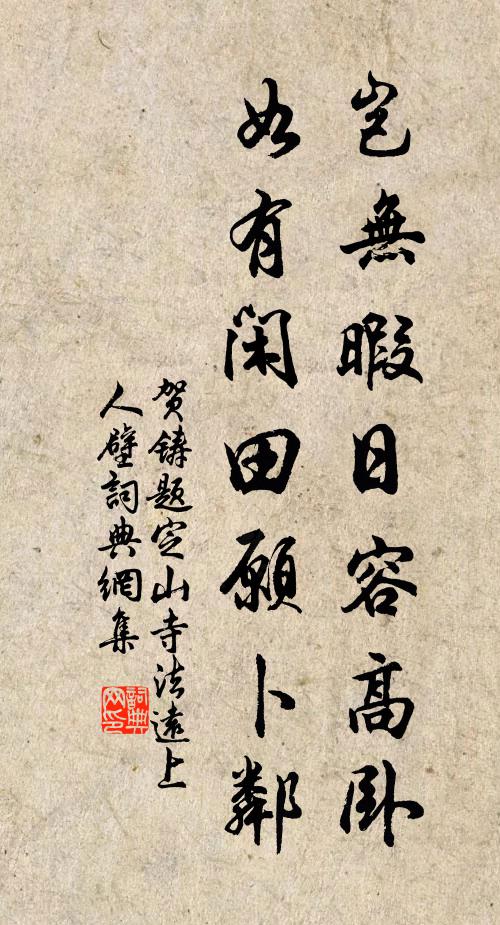 岂無暇日容高卧
如有閑田願卜鄰
贺鑄题定山寺法遠上
人壁詞典網集
詞典网印